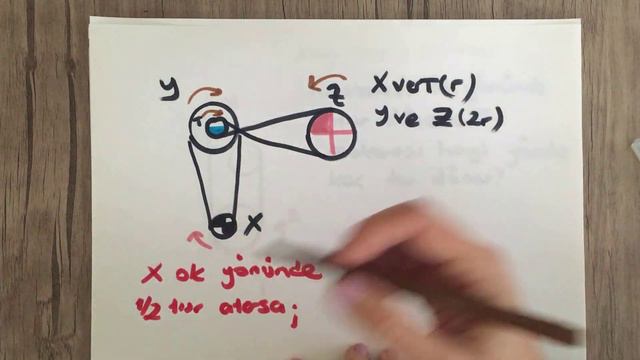 Y
Z
X ve T(r)
Y ve Z(2r)
T
X
X ok yönünde
1/2 tur atarsa;